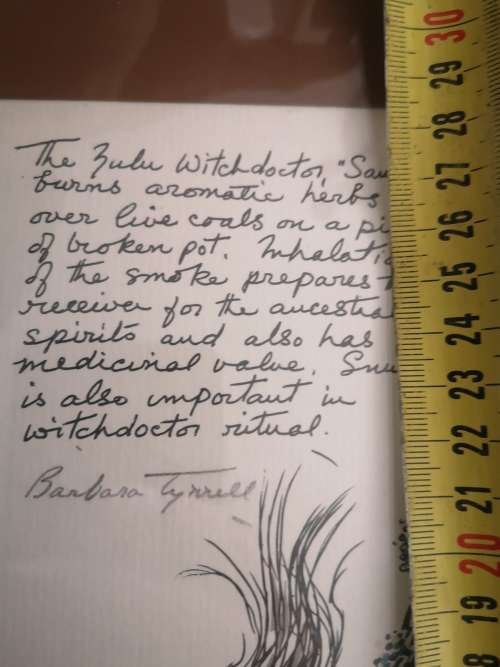 The Zulu Witchdoctor, "Sau
burns aromatic herbs
over live coals on a pi
of broken pot. Inhalati
of the smoke prepares t
receiver for the ancestral
spirits and also has
medicinal value. Snu
is also important in
witchdoctor ritual.
Barbara Tyrrell
30
29
28
27
26
25
24
23
22
21
20
19
18